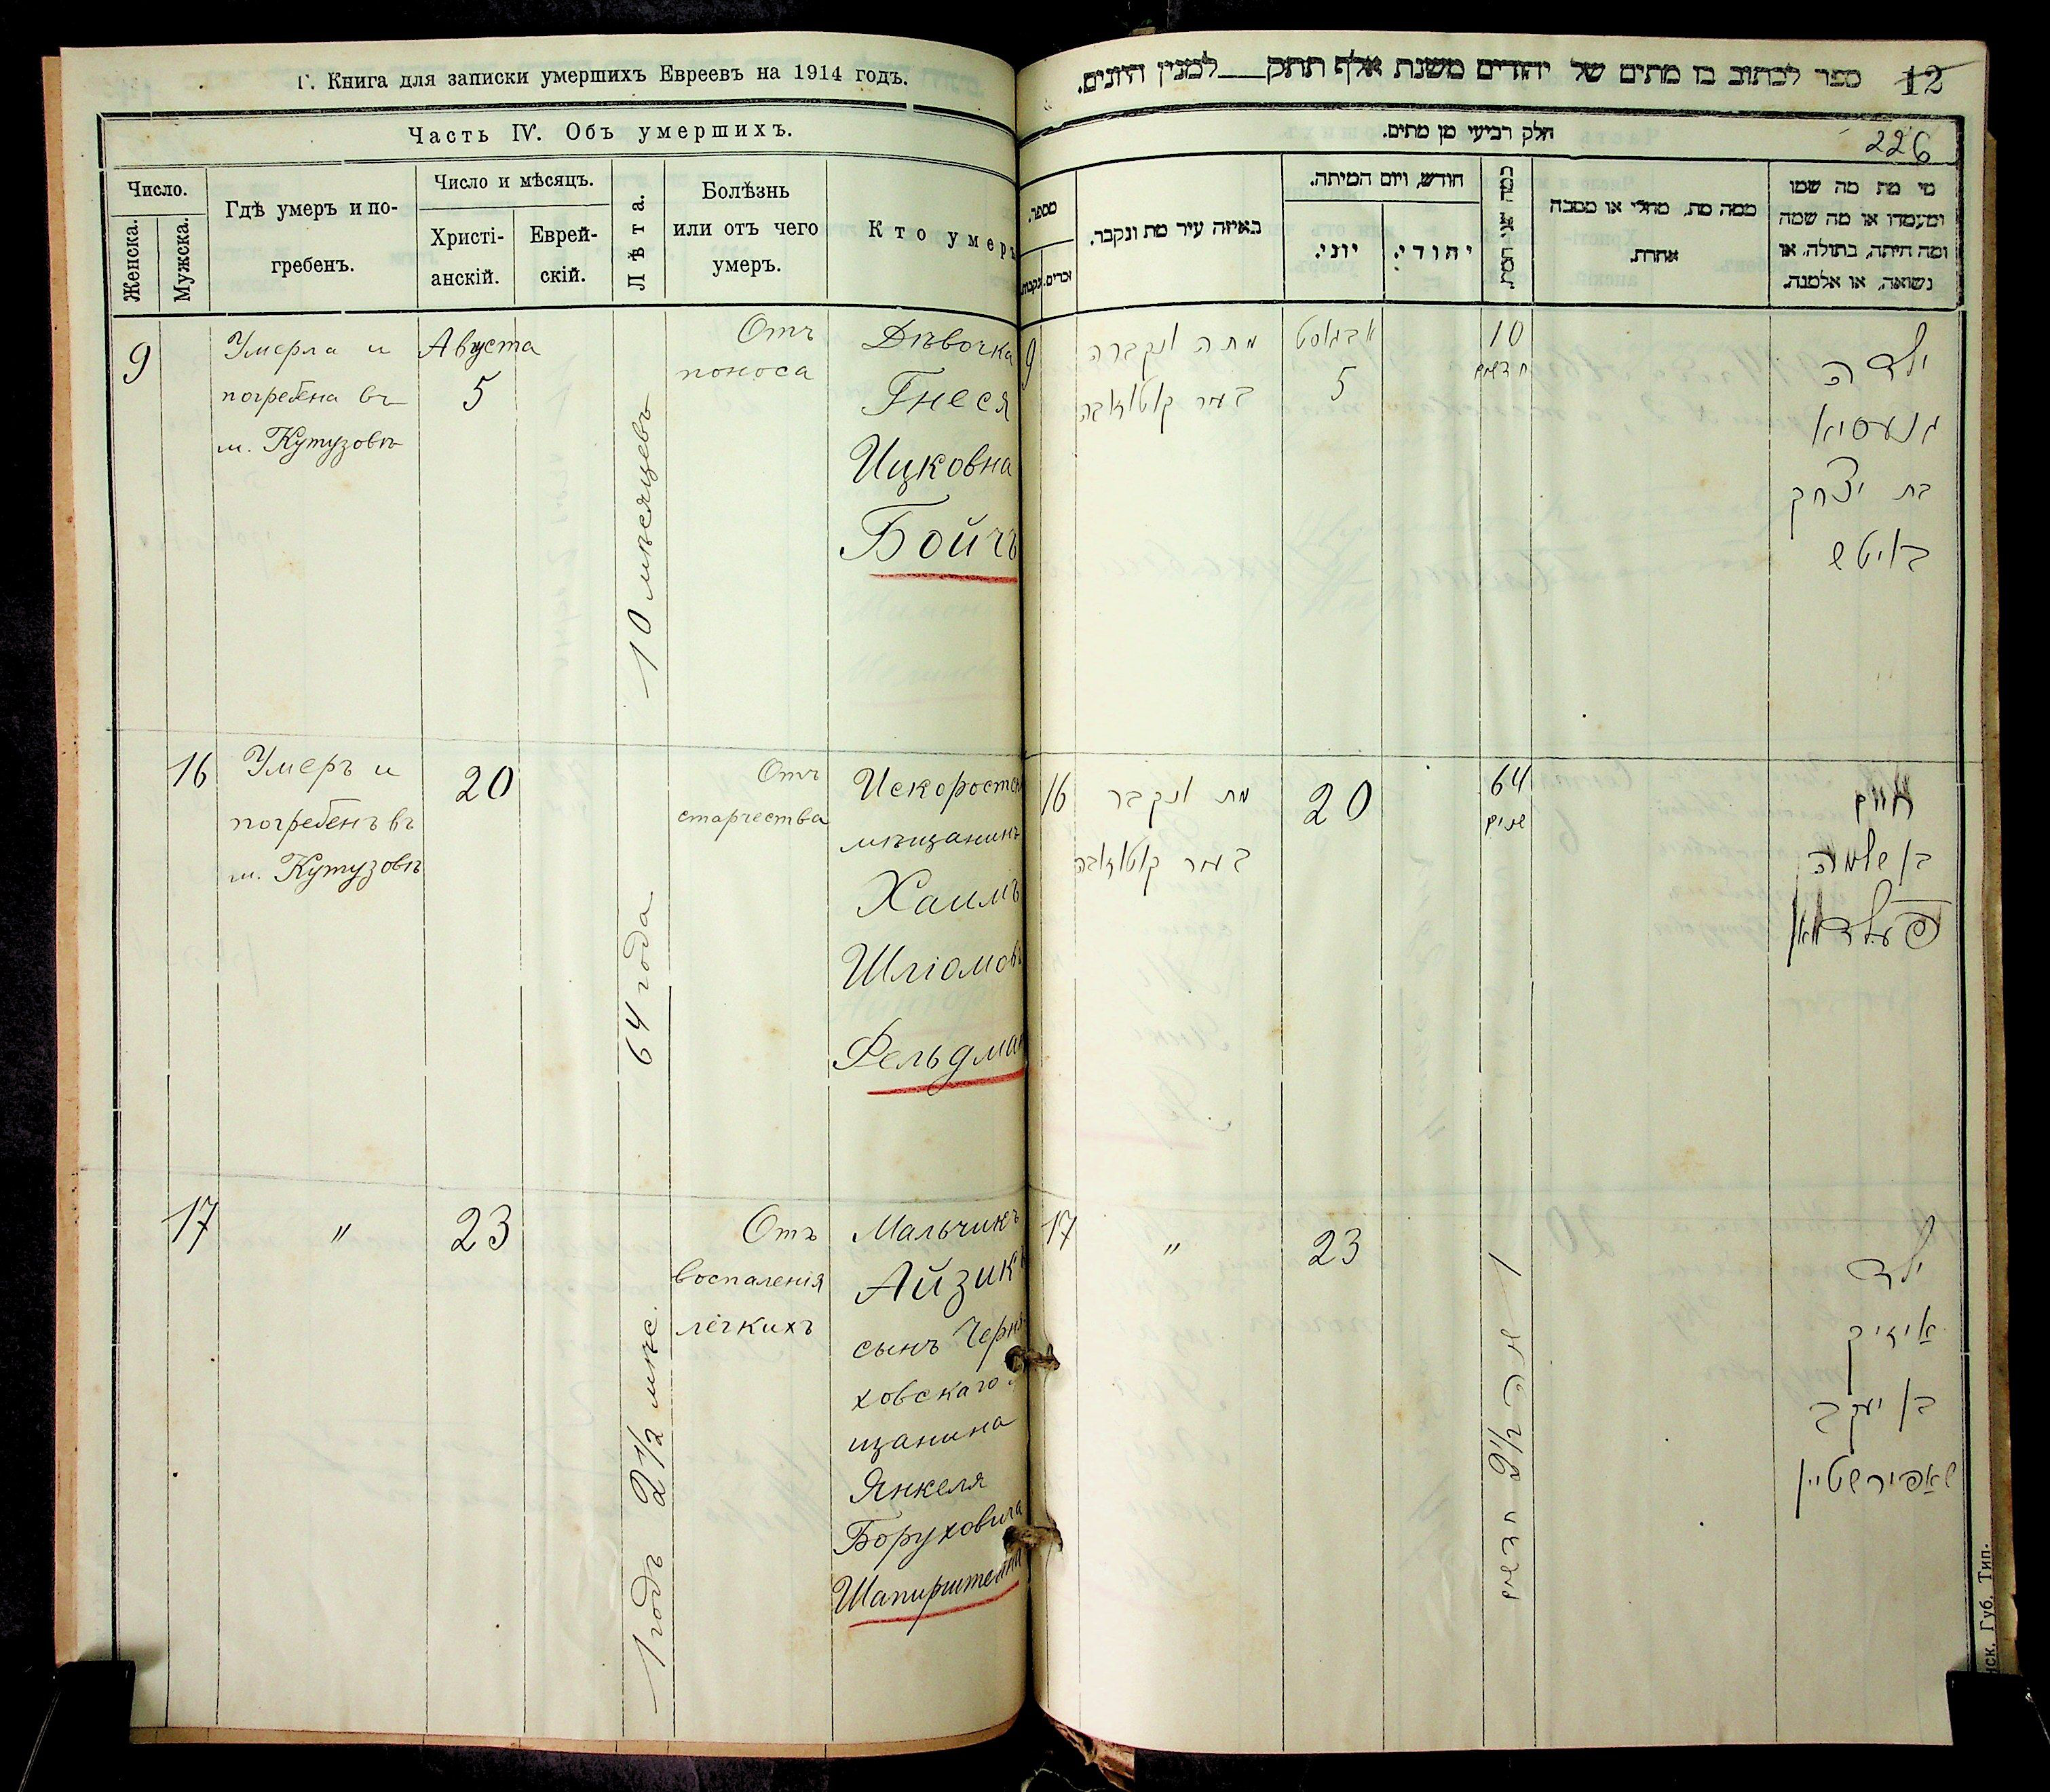 Г. Книга для записки умершихъ Евреевъ на 1914 годъ.
Часть IV. Объ умершихъ.
Число.
Женска.
Мужска.
Гдѣ умеръ и по-
гребенъ.
Число и мѣсяцъ.
Христі-
анскій.
Еврей-
скій.
Лѣта.
Болѣзнь
или отъ чего
умеръ.
Кто умеръ
9
Умерла и
погребена въ
м. Кутузовѣ
Августа
5
10 мѣсяцевъ
Отъ
поноса
Дѣвочка
Гнеся
Ицковна
Бойчъ
16
Умеръ и
погребенъ въ
м. Кутузовѣ
20
64 года
Отъ
старчества
мѣщанинъ
Хаимъ
Шліомов
Фельдман
17
"
23
1 годъ 2 1/2 мѣс.
Отъ
воспаленія
лёгкихъ
Мальчикъ
Айзикъ
сынъ Черня-
ховскаго м
щанина
Янкеля
Боруховича
Шапирштейна
ספר לכתוב בו מתים של יהודים משנת אלף תתק למנין היונים.
12
חלק רביעי מן מתים.
226
מספר.
זכרים.
נקבות.
באיזה עיר מת ונקבר.
חודש, ויום המיתה.
יוני.
יהודי.
כמה
ממה מת, מחלי או מסבה
אחרת.
מי מת מה שמו
ומעמדו או מה שמה
ומה היתה, בתולה, או
נשואה, או אלמנה.
9
מתה ונקברה
בעיר קוטוזובה
אבגוסט
5
10
חדשים
ילדה
גנעסיא
בת יצחק
באיטש
16
מת ונקבר
בעיר קוטוזובה
20
64
שנים
חיים
בן שלמה
פעלדמאן
17
"
23
1 שנה 2 1/2 חדשים
ילד
אייזיק
בן יעקב
שאפירשטיין
нск. Губ. Тип.